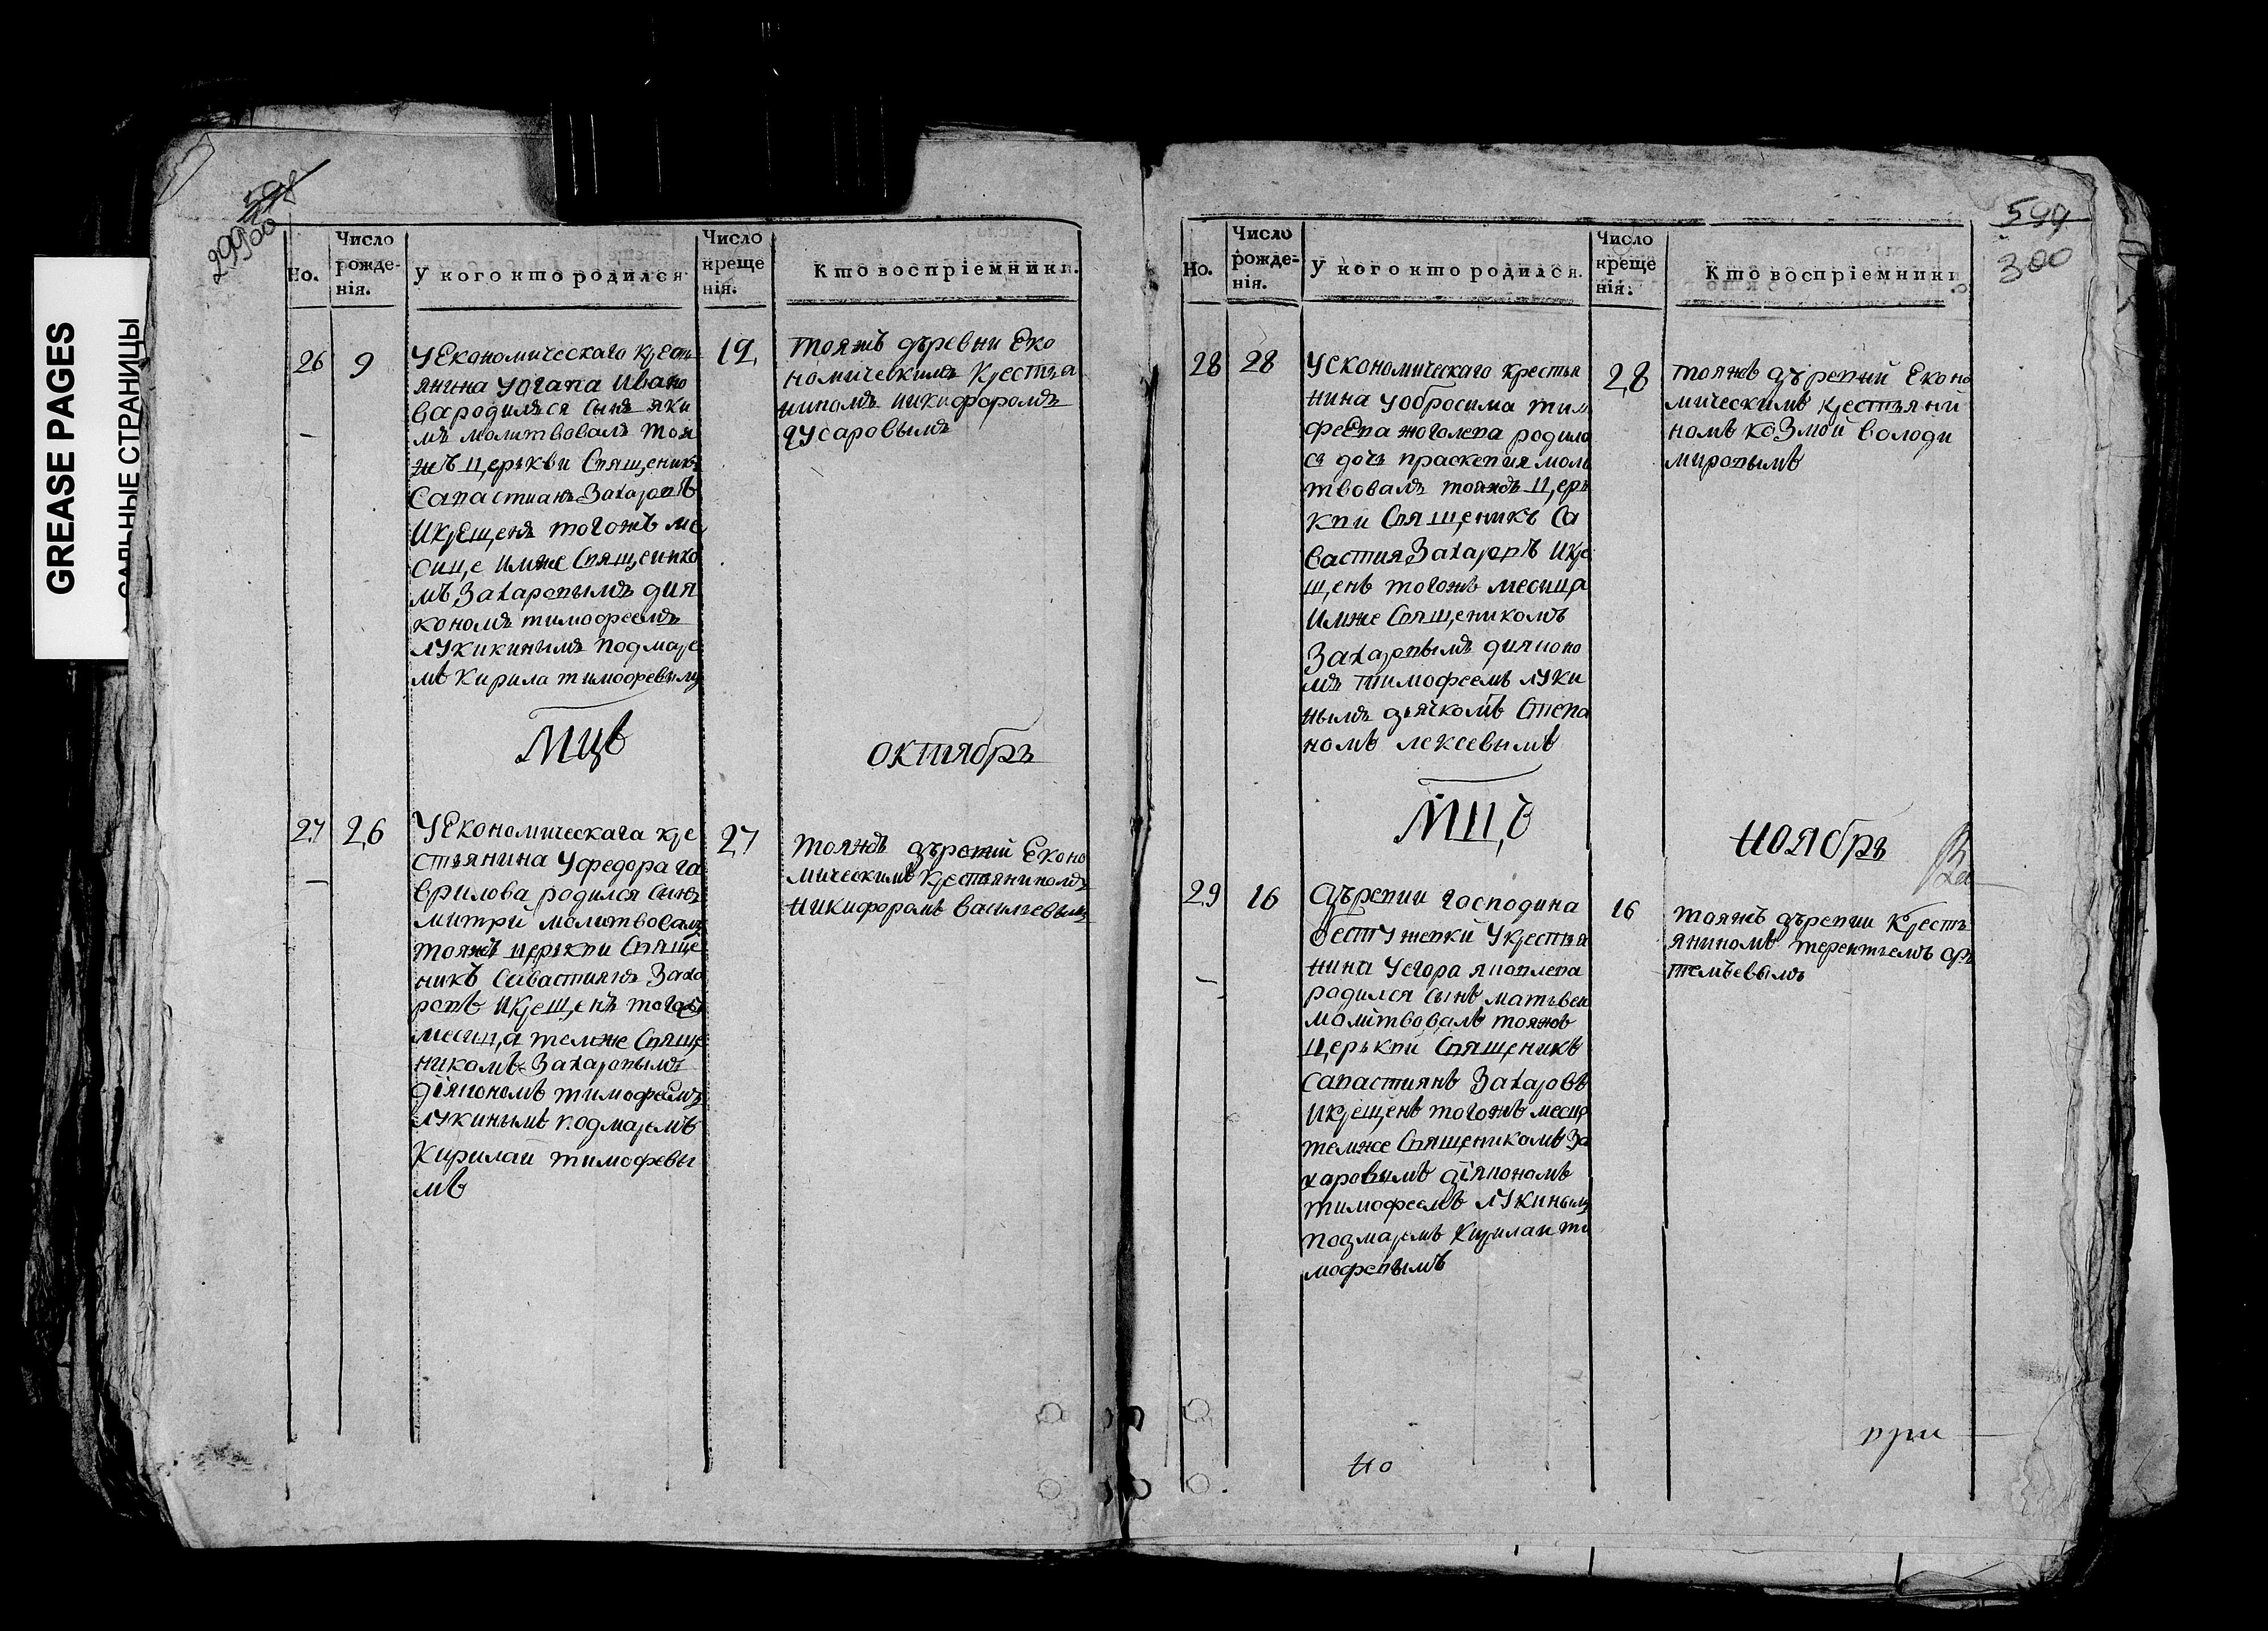 GREASE PAGES
САЛЬНЫЕ СТРАНИЦЫ
598
299
300
Но.
Число
рожде-
нія.
У кого кто родился
Число
креще
нія.
Кто воспріемники.
26
9
У Економическаго крестъ
янина уогапа Ивано
ва родилъся сынъ яки
мъ молитвовалъ тоя
жъ церькви Спященикъ
Сапастианъ Захаропъ
И крещенъ тогожъ ме
сице имже Спящеинко
мъ Захаропымъ дия
кономъ тимофеемъ
лукикинымъ подмаре
мъ Кирила тимофеевымъ
12
тояжъ дъревни Еко
номическимъ Крестъа
нипомъ никифаромъ
дусаровымъ
Мцъ
октябръ
27
26
У Економическага кре
стъянина У федора га
врилова родился сынъ
митрий молитвовалъ
тояжъ церькпи Спяще
никъ Сивастиянъ Заха
ропъ И крещенъ тогожъ
месица темже Спяще
никомъ Захаропымъ
діяпономъ тимофеемъ
лукинымъ подмаремъ
Кирилаи тимофевы
мъ
27
тояжъ дърепий Еконо
мическимъ Крестъянипомъ
Никифоромъ Васильевымъ
599
300
Но.
Число
рожде-
нія.
У кого кто родился.
Число
креще
нія.
Кто воспріемники
28
28
У економическаго крестья
нина у обросима тим
феЕпа жоголепа родила
съ дочъ праскепия моли
твовалъ тояжъ Церъ
кпи Спященикъ Са
вастия Захаропъ И кре
щенъ тогожъ месица
Имже Спященикомъ
Захаропымъ дияпоно
мъ тимофеемъ луки
нымъ дьячкомъ Степа
номъ лексевымъ
28
тояжъ дърепий Еконо
мическимъ крестъяни
номъ козмой володи
миропымъ
Мцъ
ноябръ
29
16
дърепии господина
бестужепки У крестъя
нина Уегора япоплепа
радился сынъ матъвеи
молитвовалъ тояжъ
церькпй Спященикъ
сапастиянъ Захаровъ
И крещенъ тогожъ месица
темже Спященикомъ За
харовымъ діяпономъ
тимофеемъ лукинымъ
подмаремъ Кирилаи ти
мофепымъ
16
тояжъ дърепии Крестъ
яниномъ терентъемъ ар
темъевымъ
но